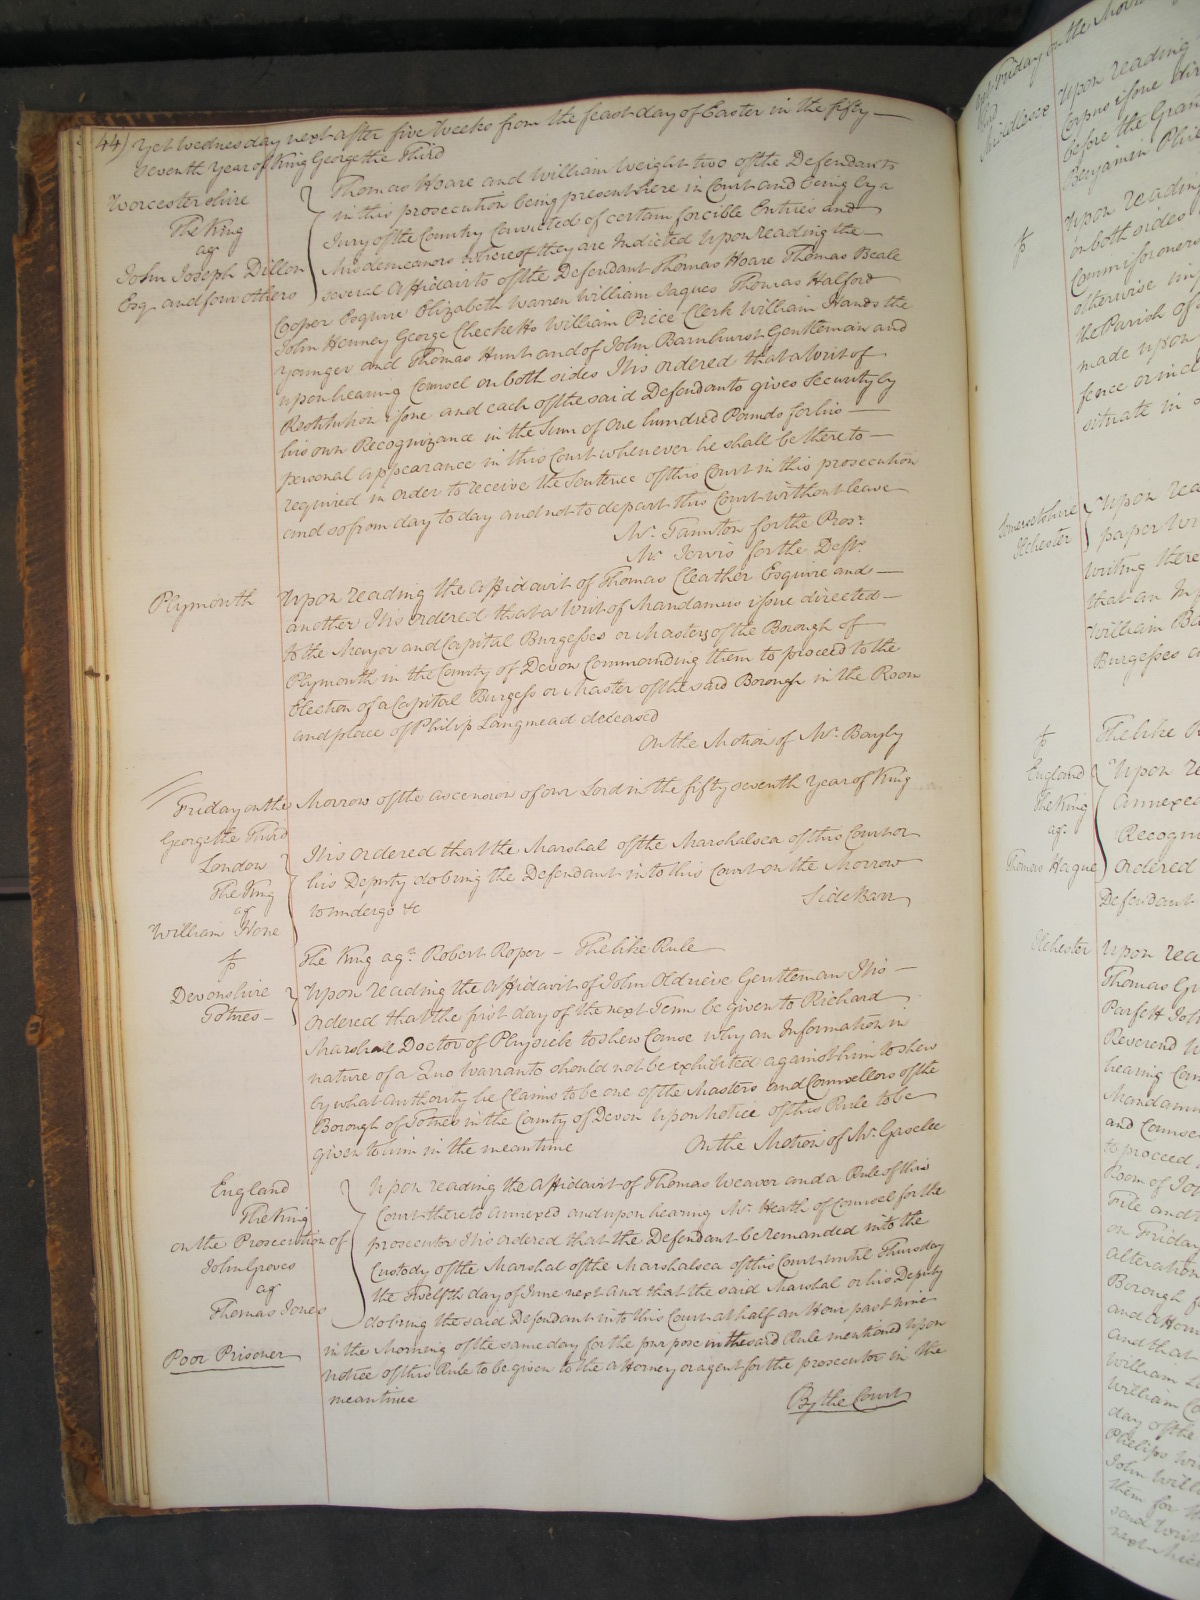 44) Yet Wednesday next after five Weeks from the feast day of Easter in the fifty
Seventh Year of King George the Third
Worcestershire
The King
agt
John Joseph Dillon
Esqr. and four others
Thomas Hoare and William Weight two of the Defendants
in this prosecution being present here in Court and being by a
Jury of the Country Convicted of certain forcible Entries and
Misdemeanors whereof they are Indicted Upon reading the
several Affidavits of the Defendant Thomas Hoare Thomas Beale
Cooper Esquire Elizabeth Warren William Jaques Thomas Halford
John Henney George Checketts William Price Clerk William Hands the
younger and Thomas Hunt and of John Barnhurst Gentleman and
upon hearing Counsel on both sides It is ordered that a Writ of
Restitution issue and each of the said Defendants gives Security by
his own Recognizance in the Sum of One hundred Pounds for his
personal appearance in this Court whenever he shall be thereto
required in order to receive the Sentence of this Court in this prosecution
and so from day to day and not to depart this Court without leave
Mr. Taunton for the Prosr.
Mr. Jervis for the Defts.
Plymouth
Upon reading the Affidavit of Thomas Cleather Esquire and
another It is Ordered that a Writ of Mandamus issue directed
to the Mayor and Capital Burgesses or Masters of the Borough of
Plymouth in the County of Devon Commanding them to proceed to the
Election of a Capital Burgess or Master of the said Borough in the Room
and place of Philip Langmead deceased
On the Motion of Mr. Bayly
Friday on the Morrow of the ascension of our Lord in the fifty seventh Year of King
George the Third
London
The King
agt
William Hone
It is Ordered that the Marshal of the Marshalsea of this Court or
his Deputy do bring the Defendant into this Court on the Morrow
to undergo &c
Side Barr
The King agt. Robert Roper – The like Rule
Devonshire
Totnes
Upon reading the Affidavit of John Oldrieve Gentleman It is
Ordered that the first day of the next Term be given to Richard
Marshall Doctor of Physick to shew Cause why an Information in
nature of a Quo Warranto should not be exhibited against him to shew
by what Authority he Claims to be one of the Masters and Counsellors of the
Borough of Totnes in the County of Devon Upon Notice of this Rule to be
given to him in the mean time
On the Motion of Mr. Gaselee
England
The King
on the Prosecution of
John Groves
agt
Thomas Jones
Poor Prisoner
Upon reading the Affidavit of Thomas Weaver and a Rule of this
Court thereto annexed and upon hearing Mr. Heath of Counsel for the
prosecutor It is ordered that the Defendant be remanded into the
Custody of the Marshal of the Marshalsea of this Court until Thursday
the twelfth day of June next And that the said Marshal or his Deputy
do bring the said Defendant into this Court at half an Hour past nine
in the Morning of the same day for the purpose in the said Rule mentioned Upon
notice of this Rule to be given to the attorney or agent for the prosecutor in the
meantime
By the Court
Upon reading
Corpus issue
before the
Benjamin
Upon reading
on both sides
Commissioners
otherwise
the Parish of
made upon
fence or
situate in
Somersetshire
Ilchester
Upon
paper
writing there
that an
William
Burgesses
The like
England
The King
agt
Thomas Hague
Upon
annexed
Recogni
Ordered
Defendant
Ilchester
Upon
Thomas
Parfett
Reverend
hearing
Mandamus
and
to proceed
Room of
on Friday
alteration
Borough
and
and that
William
William
day of the
Phelips
John
them for